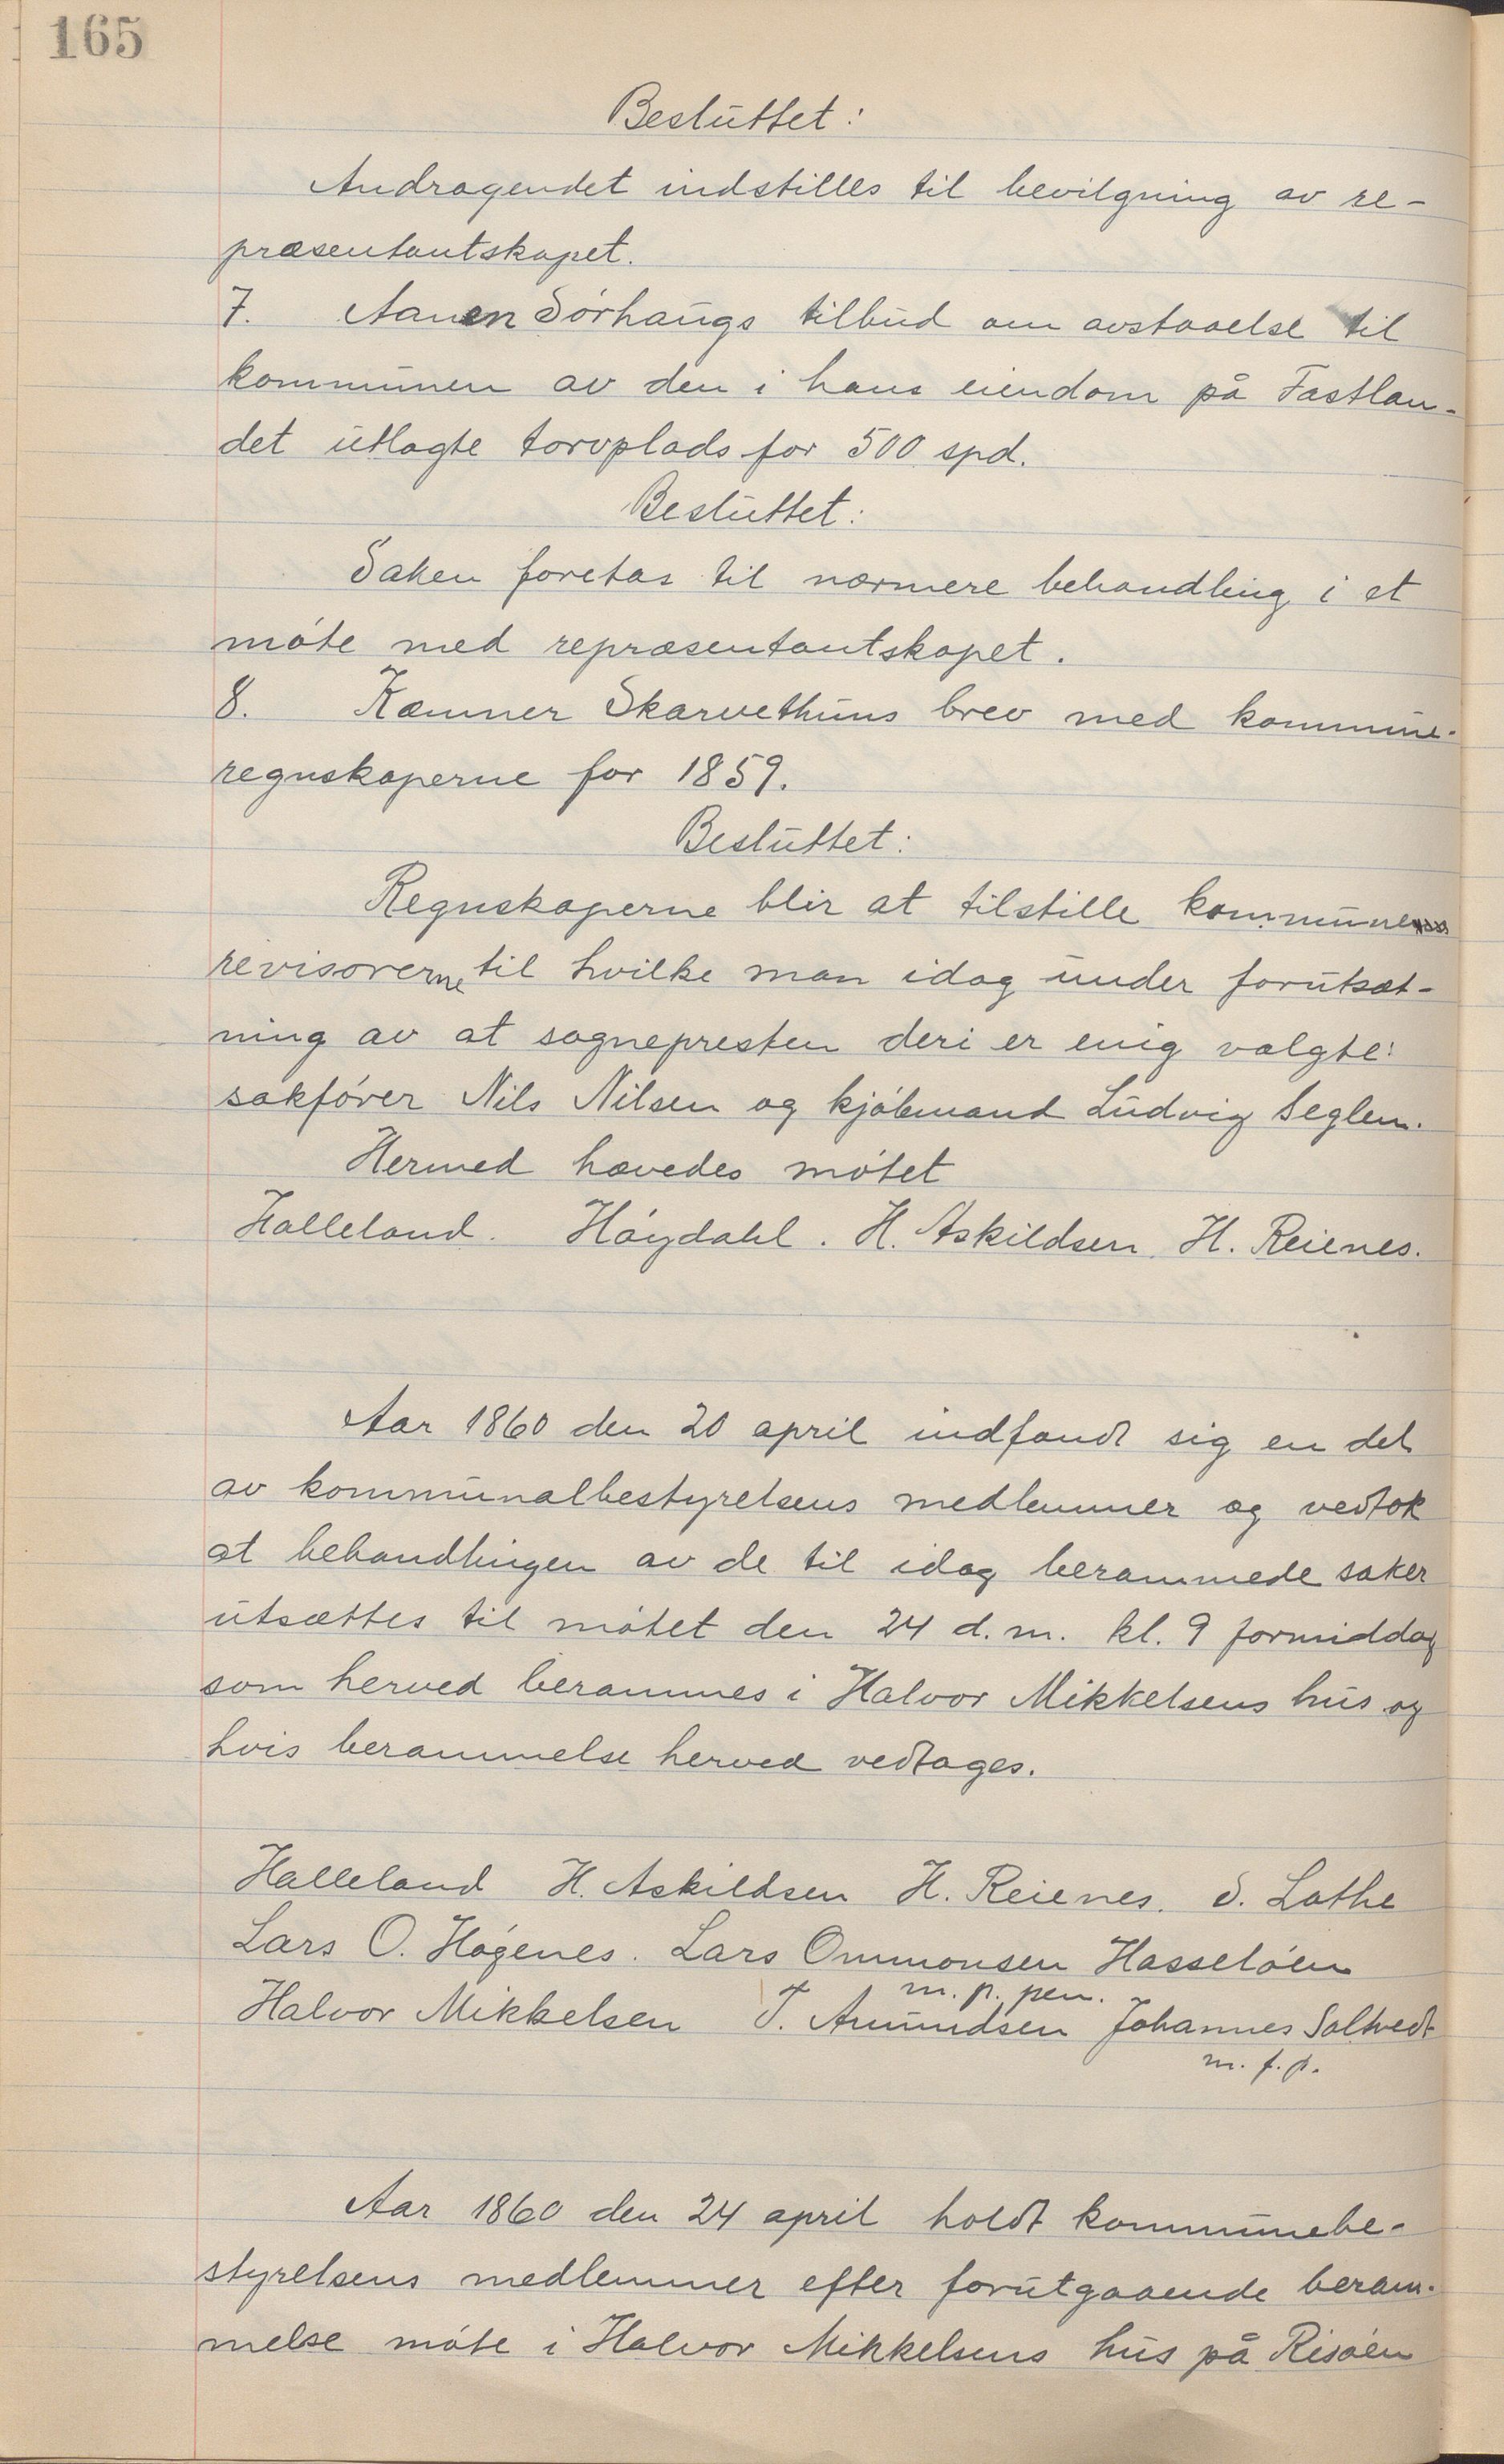 165
Besluttet:
Andragendet indstilles til bevilgning av re-
præsentantskapet.
7. Aanen Sörhaugs tilbud om avstaaelse til
kommunen av den i hans eiendom på Fastlan-
det utlagte torvplads for 500 spd.
Besluttet:
Saken foretas til nærmere behandling i et
möte med repræsentantskapet.
8. Kæmner Skarvethuns brev med kommune-
regnskaperne for 1859.
Besluttet:
Regnskaperne blir at tilstille kommune
revisorerne til hvilke man idag under forutsæt-
ning av at sognepresten deri er enig valgte:
sakförer Nils Nilsen og kjöbmand Ludvig Seglem.
Hermed hævedes mötet
Halleland. Höydahl. H. Askildsen. H. Reienes.
Aar 1860 den 20 april indfandt sig en del
av kommunalbestyrelsens medlemmer og vedtok
at behandlingen av de til idag berammede saker
utsættes til mötet den 24 d.m. kl. 9 formiddag
som herved berammes i Halvor Mikkelsens hus og
hvis berammelse herved vedtages.
Halleland H. Askildsen H. Reienes. S. Lothe
Lars O. Högenes. Lars Ommonsen Hasselöen
m. p. pen.
Halvor Mikkelsen T. Amundsen Johannes Saltvedt
m. f. p.
Aar 1860 den 24 april holdt kommunebe-
styrelsens medlemmer efter forutgaaende beram-
melse möte i Halvor Mikkelsens hus på Risöen